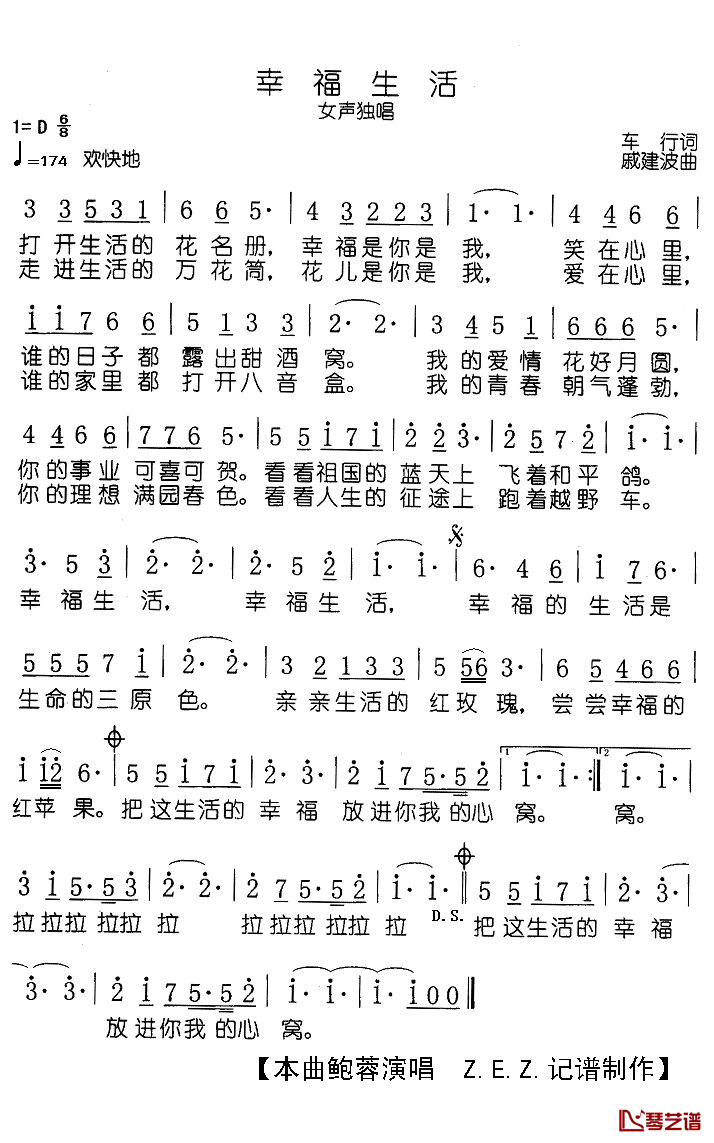 幸福生活
女声独唱
1=D 6/8
车 行词
♩=174 欢快地
戚建波曲
3 3531 | 6 6 5· | 4 3223 | 1· 1· | 4 46 6 |
打 开生活的 花 名 册, 幸 福是你是 我, 笑 在心 里,
走 进生活的 万 花 筒, 花 儿是你是 我, 爱 在心 里,
i i76 6 | 5 13 3 | 2· 2· | 3 45 1 | 666 5· |
谁的日子 都 露 出甜 酒 窝。 我 的爱 情 花好月 圆,
谁的家里 都 打 开八 音 盒。 我 的青 春 朝气蓬 勃,
4 46 6 | 776 5· | 5 5i7i | 2 2 3· | 2 57 2 | i· i· |
你 的事 业 可喜可 贺。看 看祖国的 蓝 天上 飞 着和 平 鸽。
你 的理 想 满园春 色。看 看人生的 征 途上 跑 着越 野 车。
3· 5 3 | 2· 2· | 2· 5 2 | i· i· | 6· 4 6 | i 7 6· |
幸 福 生 活, 幸 福 生 活, 幸 福 的 生 活是
5557 i | 2· 2· | 3 2133 | 5 56 3· | 6 5466 |
生命的三 原 色。 亲 亲生活的 红玫 瑰, 尝 尝幸福的
i i2 6· | 5 5i7i | 2· 3· | 2 i75·52 | 1 i· i· :‖ 2 i· i· |
红苹 果。把 这生活的 幸 福 放 进你我 的心 窝。 窝。
3 i5·53 | 2· 2· | 2 75·52 | i· i· ‖ 5 5i7i | 2· 3· |
拉 拉拉 拉拉 拉 拉 拉拉 拉拉 拉 D.S. 把 这生活的 幸 福
3· 3· | 2 i75·52 | i· i· | i· i00 ‖
放 进你我 的心 窝。
【本曲鲍蓉演唱 Z.E.Z.记谱制作】
琴艺谱